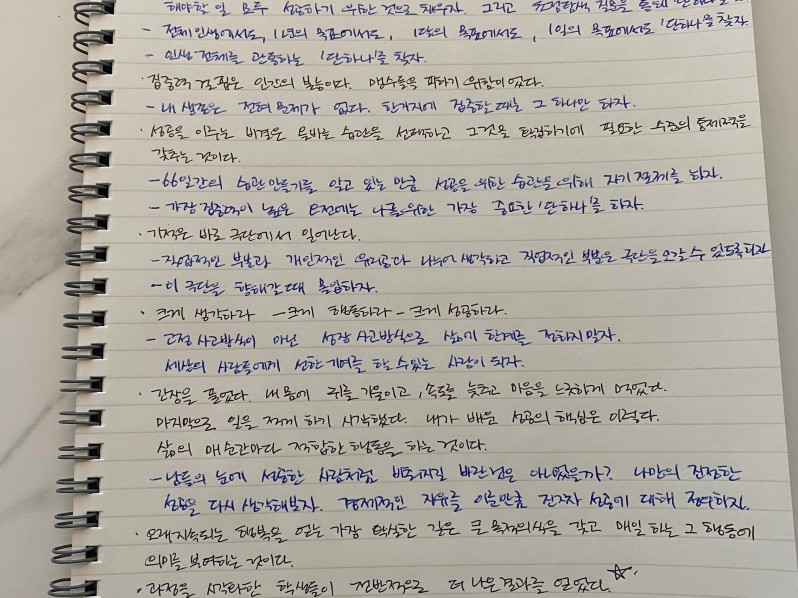 해야할 일 모두 성공하기 위한 것으로 채우자. 그리고 초점탐색 질문을 통해 '단하나'를
- 전체 인생에서도, 1년의 목표에서도, 1달의 목표에서도, 1일의 목표에서도 '단하나'를 찾자
- 인생 전체를 관통하는 '단하나'를 찾자.
· 집중력 결핍은 인간의 본능이다. 맹수들을 피하기 위함이었다.
- 내 생존은 전혀 문제가 없다. 한가지에 집중할 때는 그 하나만 하자.
· 성공을 이루는 비결은 올바른 습관을 선택하고 그것을 확립하기에 필요한 수준의 통제력을
갖추는 것이다.
- 66일간의 습관 만들기를 알고 있는 만큼 성공을 위한 습관을 위해 자기절제를 하자.
- 가장 집중력이 높은 오전에는 나를 위한 가장 중요한 '단하나'를 하자.
· 기적은 바로 극단에서 일어난다.
- 직업적인 부분과 개인적인 나누어 생각하고 직업적인 부분은 극단을 오갈 수 있도록 하자
- 이 극단을 향해갈 때 몰입하자.
· 크게 생각하라 - 크게 행동하라 - 크게 성공하라.
- 고정 사고방식이 아닌 성장 사고방식으로 삶에 한계를 정하지 말자.
세상의 사람들에게 선한 기여를 할 수 있는 사람이 되자.
· 긴장을 풀었다. 내 몸에 귀를 기울이고, 속도를 늦추고 마음을 느긋하게 먹었다.
마지막으로 일을 적게 하기 시작했다. 내가 배운 성공의 핵심은 이렇다.
삶의 매 순간마다 적합한 행동을 하는 것이다.
- 남들의 눈에 성공한 사람처럼 비춰지길 바란 것은 아니었을까? 나만의 진정한
성공을 다시 생각해보자. 경제적인 자유를 이룬만큼 진짜 성공에 대해 정의하자.
· 오래 지속되는 행복을 얻는 가장 확실한 길은 큰 목적의식을 갖고 매일 하는 그 행동에
의미를 부여하는 것이다.
· 과정을 시각화한 학생들이 전반적으로 더 나은 결과를 얻었다. ☆